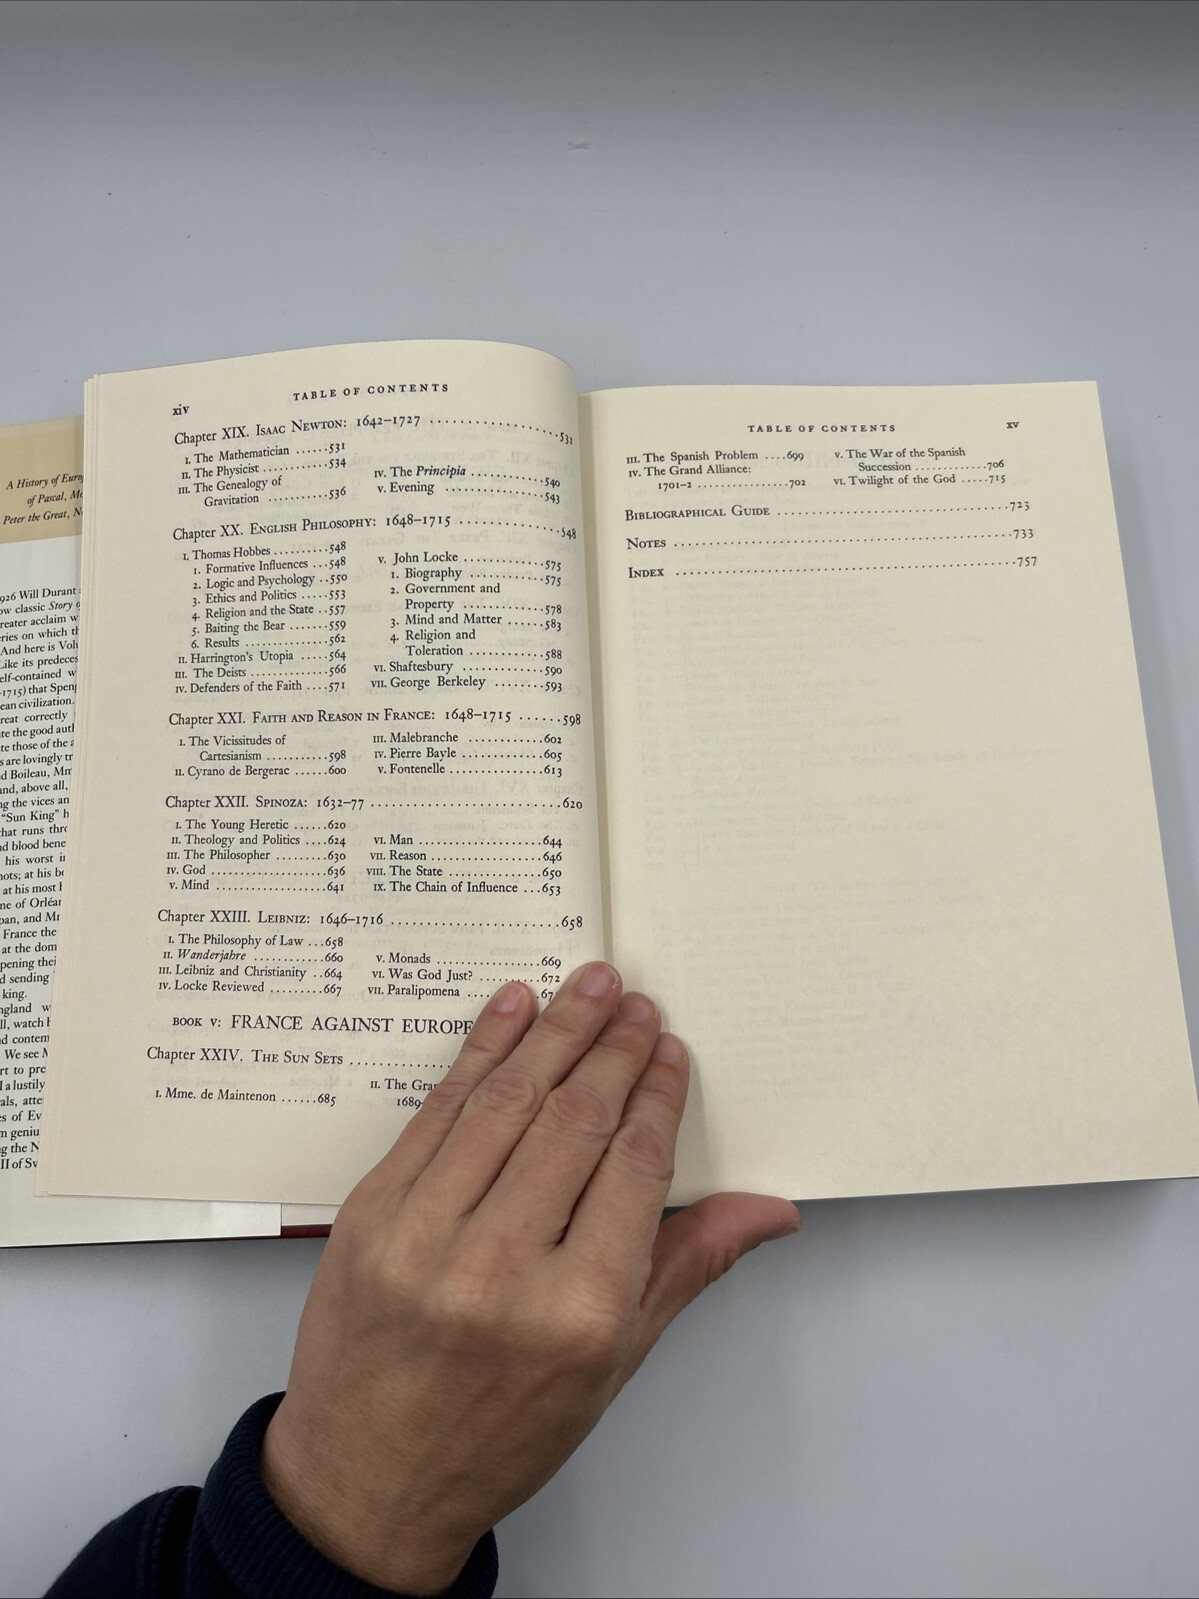 A History of
of Pascal,
Peter the Great,
Will Durant
classic Story
acclaim
on which
And here is
Like its
that
civilization.
correctly
the good
those of the
are lovingly
Boileau,
above all,
the vices
"Sun King"
that runs
blood
his worst
at his
at his most
of
and
France the
at the
sending
king.
watch
We see
to
a lustily
of
the
II of
xiv
TABLE OF CONTENTS
Chapter XIX. ISAAC NEWTON: 1642–1727 .................. 531
I. The Mathematician ......531
II. The Physicist ...........534
III. The Genealogy of
Gravitation ..........536
IV. The Principia ..........540
V. Evening .............543
Chapter XX. ENGLISH PHILOSOPHY: 1648–1715 ..............548
I. Thomas Hobbes ..........548
1. Formative Influences ...548
2. Logic and Psychology ..550
3. Ethics and Politics .....553
4. Religion and the State ..557
5. Baiting the Bear .......559
6. Results ...............562
II. Harrington's Utopia .....564
III. The Deists .............566
IV. Defenders of the Faith ....571
V. John Locke .............575
1. Biography ............575
2. Government and
Property ............578
3. Mind and Matter ......583
4. Religion and
Toleration ...........588
VI. Shaftesbury ............590
VII. George Berkeley ........593
Chapter XXI. FAITH AND REASON IN FRANCE: 1648–1715 ......598
I. The Vicissitudes of
Cartesianism ...........598
II. Cyrano de Bergerac ......600
III. Malebranche ...........602
IV. Pierre Bayle ............605
V. Fontenelle .............613
Chapter XXII. SPINOZA: 1632–77 ........................620
I. The Young Heretic ......620
II. Theology and Politics ....624
III. The Philosopher .........630
IV. God ..................636
V. Mind .................641
VI. Man ..................644
VII. Reason ...............646
VIII. The State .............650
IX. The Chain of Influence ...653
Chapter XXIII. LEIBNIZ: 1646–1716 ......................658
I. The Philosophy of Law ...658
II. Wanderjahre ...........660
III. Leibniz and Christianity ..664
IV. Locke Reviewed .........667
V. Monads ...............669
VI. Was God Just? .........672
VII. Paralipomena
BOOK V: FRANCE AGAINST EUROPE
Chapter XXIV. THE SUN SETS ..............
I. Mme. de Maintenon ......685
II. The
1689–
TABLE OF CONTENTS
xv
III. The Spanish Problem ....699
IV. The Grand Alliance:
1701–2 ................702
V. The War of the Spanish
Succession .............706
VI. Twilight of the God .....715
BIBLIOGRAPHICAL GUIDE ................................723
NOTES ...............................................733
INDEX ...............................................757